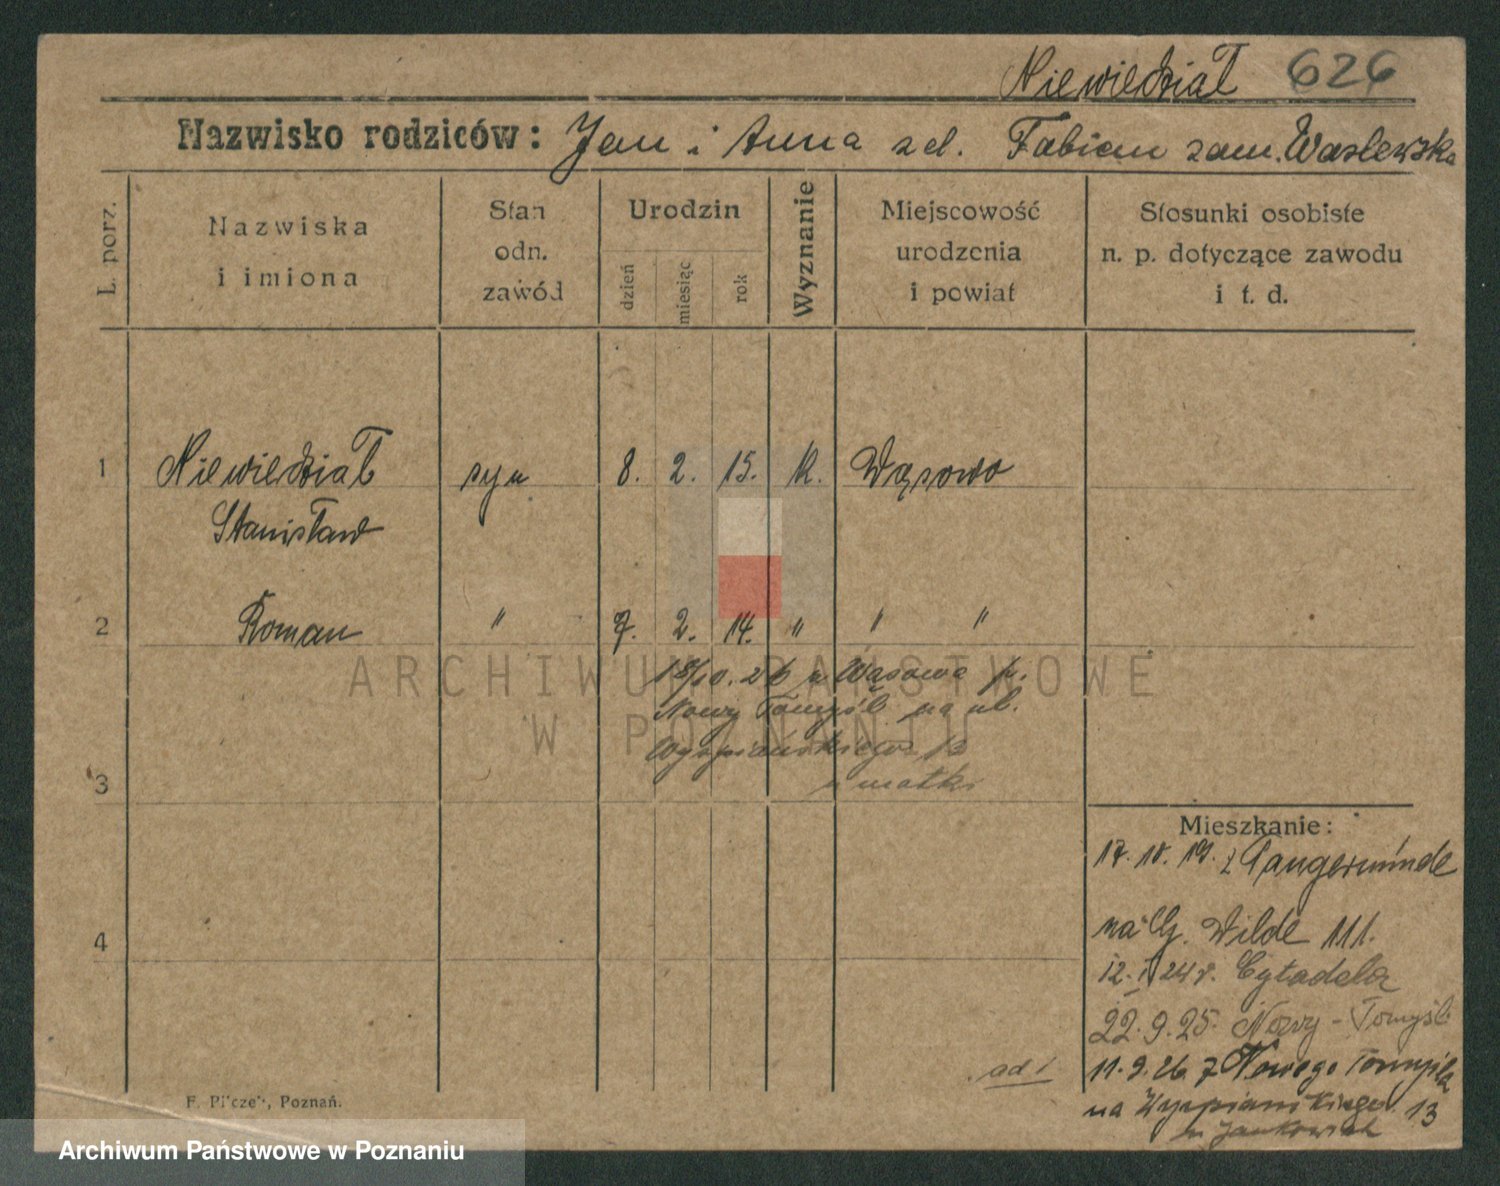 Niewiedział 626
Nazwisko rodziców: Jan i Anna zd. Fabian zam. Waslewska
L. porz.
Nazwiska
i imiona
Stan
odn.
zawód
Urodzin
dzień
miesiąc
rok
Wyznanie
Miejscowość
urodzenia
i powiat
Stosunki osobiste
n. p. dotyczące zawodu
i t. d.
1 Niewiedział syn 8. 2. 15. k. Wąsowo
Stanisław
2 Roman " 7. 2. 14. " " "
18/10. 26 z Wąsowa p.
Nowy Tomyśl na ul.
Wyspiańskiego 13
u matki
3
4
Mieszkanie:
17. 10. 19. z Tangermünde
na G. Wilde 111.
12. 24 r. Cytadela
22. 9. 25. Nowy-Tomyśl
ad 1 11. 9. 26 z Nowego Tomyśla
na Wyspiańskiego 13
F. Pilczek, Poznań.
ARCHIWUM PAŃSTWOWE
W POZNANIU
Archiwum Państwowe w Poznaniu